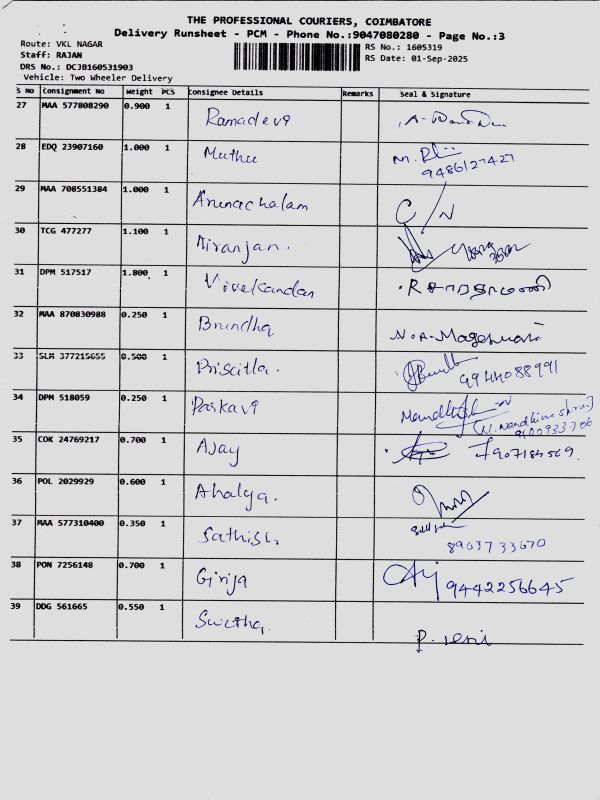 THE PROFESSIONAL COURIERS, COIMBATORE
Delivery Runsheet - PCM - Phone No.:9047080280 - Page No.:3
Route: VKL NAGAR
Staff: RAJAN
DRS No.: DCJB160531903
Vehicle: Two Wheeler Delivery
RS No.: 1605319
RS Date: 01-Sep-2025
S No Consignment No Weight PCS Consignee Details Remarks Seal & Signature
27 MAA 577808290 0.900 1 Ramadevi
28 EDQ 23907160 1.000 1 Muthu
9486127427
29 MAA 708551384 1.000 1 Arunachalam
30 TCG 477277 1.100 1 Niranjan.
31 DPM 517517 1.800 1 Vivekandan
32 MAA 870830988 0.250 1 Brindha N.A. Mageshwari
33 SLM 377215655 0.500 1 Priscilla.
9944088991
34 DPM 518059 0.250 1 Parkavi
35 COK 24769217 0.700 1 AJay 7907184569.
36 POL 2029929 0.600 1 Ahalya.
37 MAA 577310400 0.350 1 Sathish
8903733670
38 PON 7256148 0.700 1 Girija 9442256645
39 DDG 561665 0.550 1 Swetha.